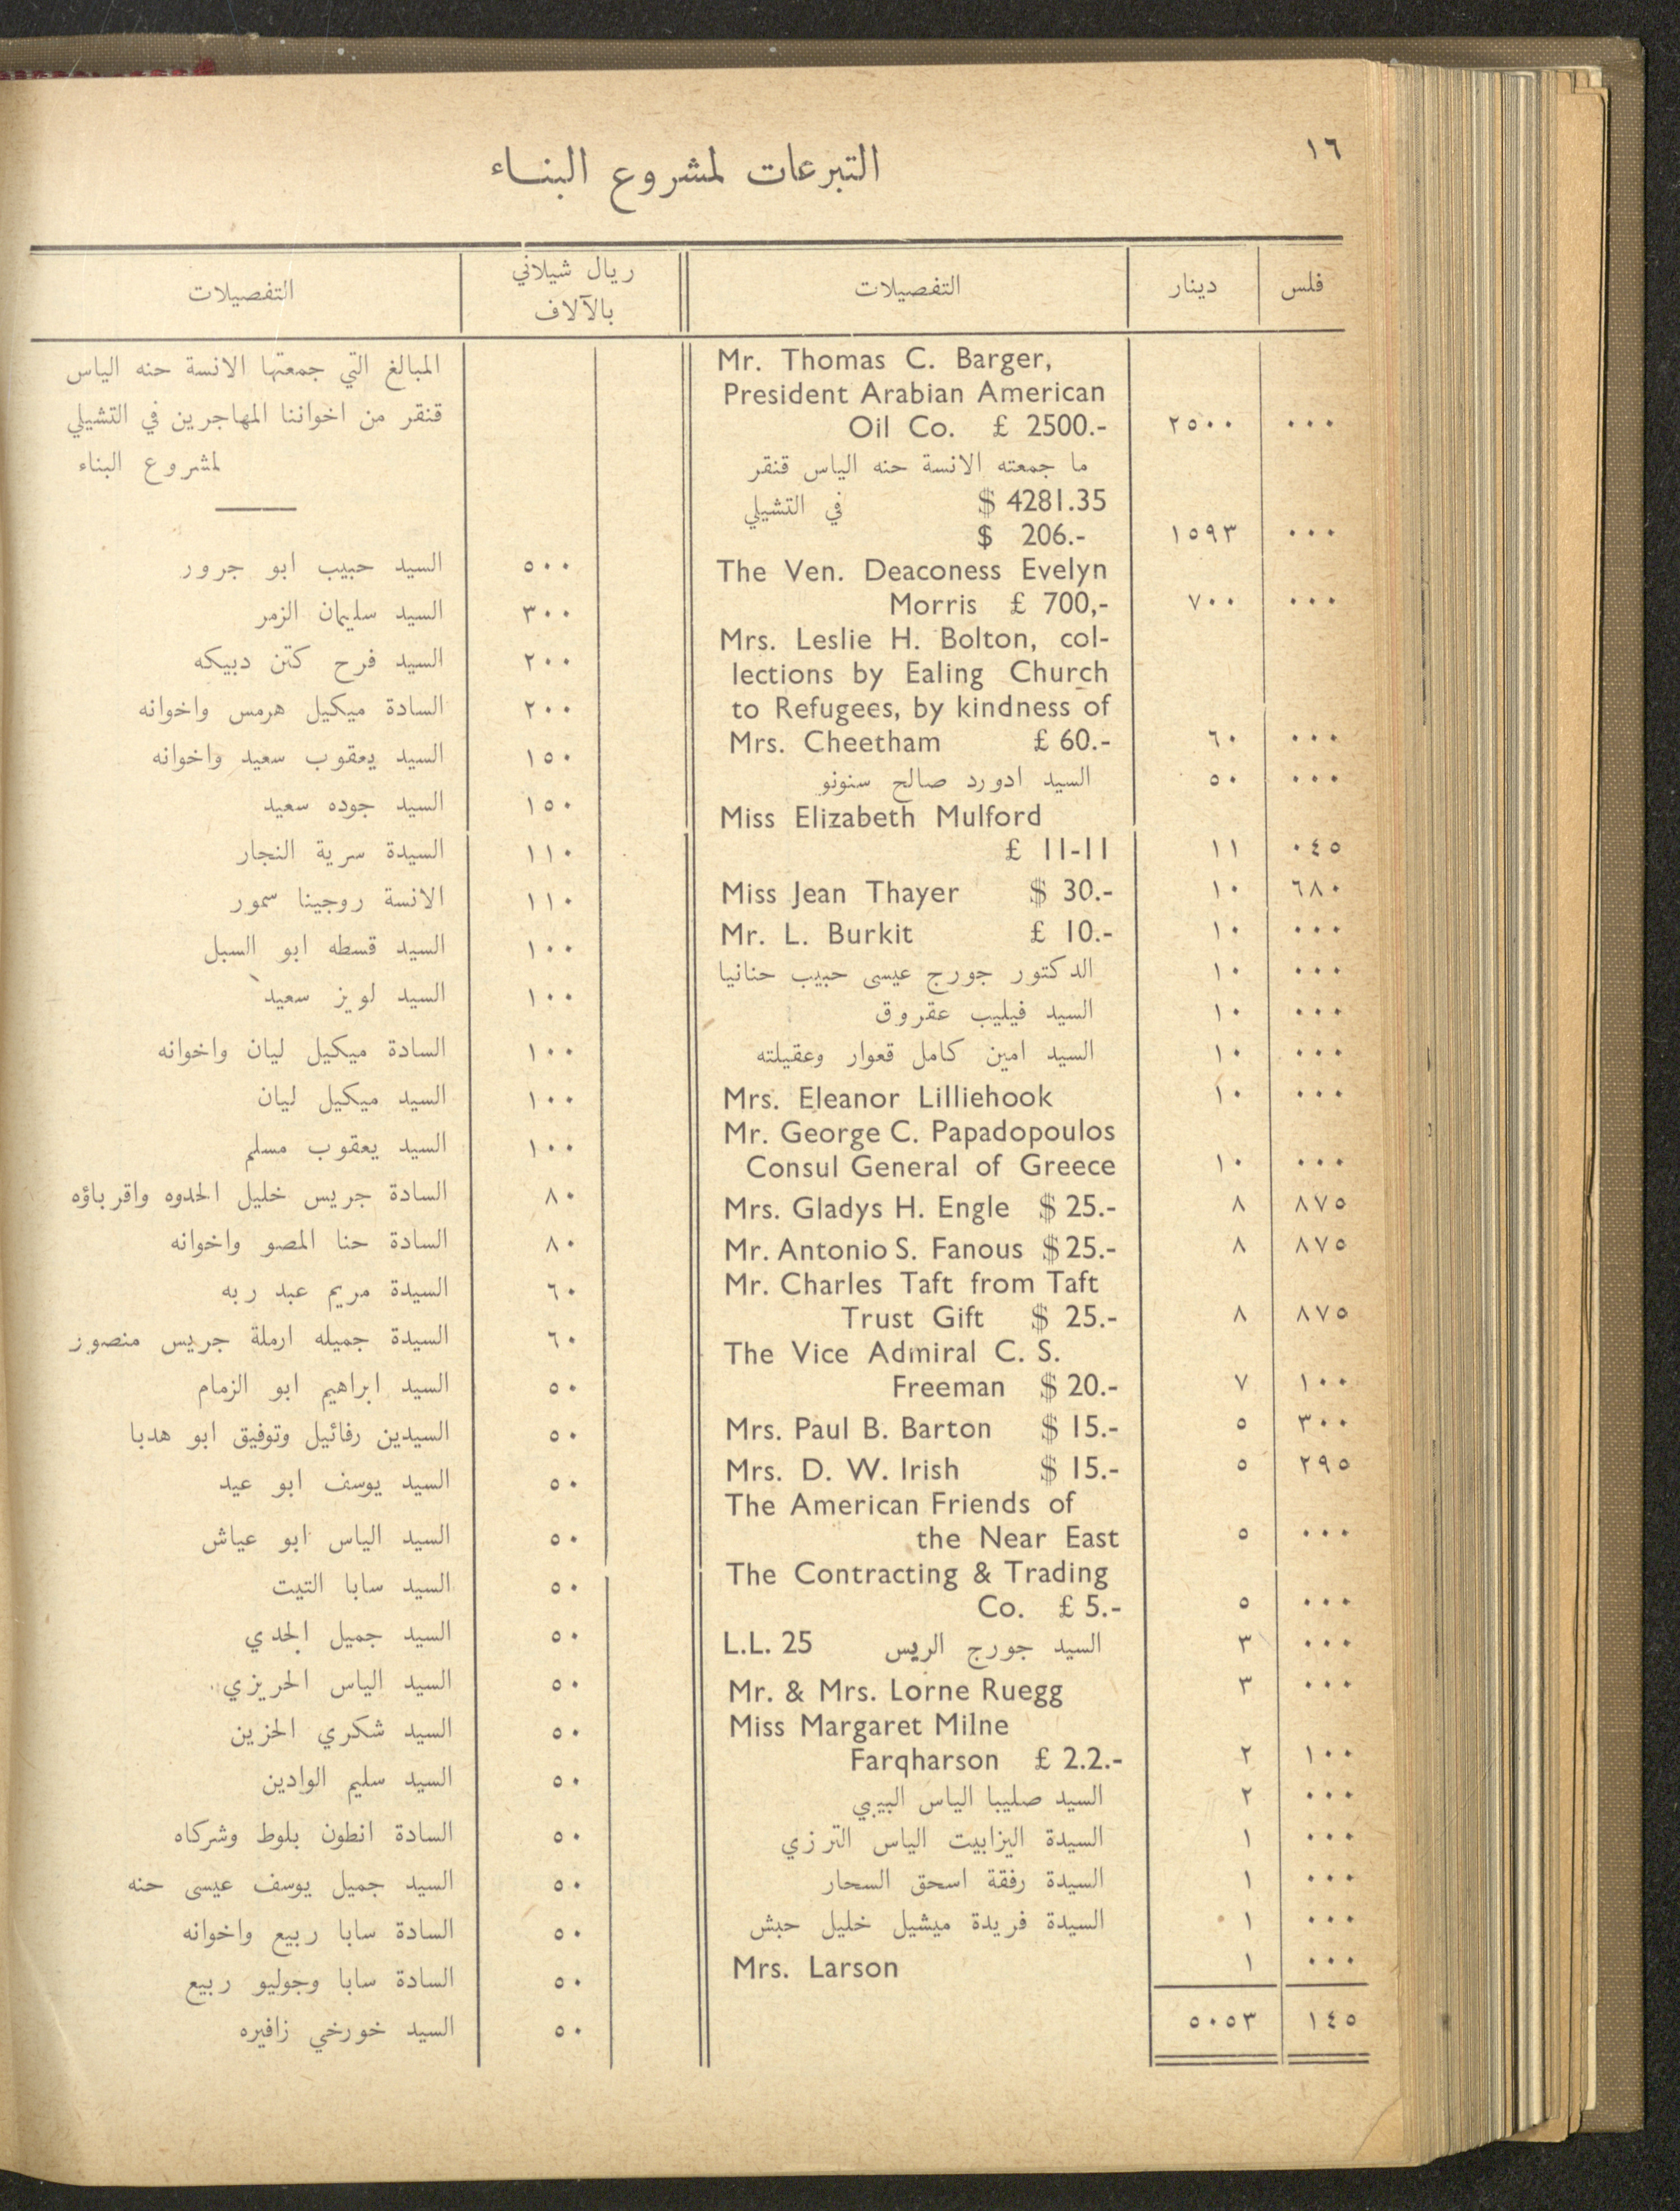 ١٦
التبرعات لمشروع البناء
فلس دينار التفصيلات
Mr. Thomas C. Barger,
President Arabian American
٠٠٠ ٢٥٠٠ Oil Co. £ 2500.-
ما جمعته الانسة حنه الياس قنقر
في التشيلي $ 4281.35
٠٠٠ ١٥٩٣ $ 206.-
The Ven. Deaconess Evelyn
٠٠٠ ٧٠٠ Morris £ 700,-
Mrs. Leslie H. Bolton, col-
lections by Ealing Church
to Refugees, by kindness of
٠٠٠ ٦٠ Mrs. Cheetham £ 60.-
٠٠٠ ٥٠ السيد ادورد صالح سنونو
Miss Elizabeth Mulford
٠٤٥ ١١ £ 11-11
٦٨٠ ١٠ Miss Jean Thayer $ 30.-
٠٠٠ ١٠ Mr. L. Burkit £ 10.-
٠٠٠ ١٠ الدكتور جورج عيسى حبيب حنانيا
٠٠٠ ١٠ السيد فيليب عقروق
٠٠٠ ١٠ السيد امين كامل قعوار وعقيلته
٠٠٠ ١٠ Mrs. Eleanor Lilliehook
Mr. George C. Papadopoulos
٠٠٠ ١٠ Consul General of Greece
٨٧٥ ٨ Mrs. Gladys H. Engle $ 25.-
٨٧٥ ٨ Mr. Antonio S. Fanous $ 25.-
Mr. Charles Taft from Taft
٨٧٥ ٨ Trust Gift $ 25.-
The Vice Admiral C. S.
١٠٠ ٧ Freeman $ 20.-
٣٠٠ ٥ Mrs. Paul B. Barton $ 15.-
٢٩٥ ٥ Mrs. D. W. Irish $ 15.-
The American Friends of
٠٠٠ ٥ the Near East
The Contracting & Trading
٠٠٠ ٥ Co. £ 5.-
٠٠٠ ٣ السيد جورج الريس L.L. 25
٠٠٠ ٣ Mr. & Mrs. Lorne Ruegg
Miss Margaret Milne
١٠٠ ٢ Farqharson £ 2.2.-
٠٠٠ ٢ السيد صليبا الياس البيبي
٠٠٠ ١ السيدة اليزابيت الياس الترزي
٠٠٠ ١ السيدة رفقة اسحق السحار
٠٠٠ ١ السيدة فريدة ميشيل خليل حبش
٠٠٠ ١ Mrs. Larson
١٤٥ ٥٠٥٣
ريال شيلاني
بالآلاف
التفصيلات
المبالغ التي جمعتها الانسة حنه الياس
قنقر من اخواننا المهاجرين في التشيلي
لمشروع البناء
٥٠٠ السيد حبيب ابو جرور
٣٠٠ السيد سليمان الزمر
٢٠٠ السيد فرح كتن دبيكه
٢٠٠ السادة ميكيل هرمس واخوانه
١٥٠ السيد يعقوب سعيد واخوانه
١٥٠ السيد جوده سعيد
١١٠ السيدة سرية النجار
١١٠ الانسة روجينا سمور
١٠٠ السيد قسطه ابو السبل
١٠٠ السيد لويز سعيد
١٠٠ السادة ميكيل ليان واخوانه
١٠٠ السيد ميكيل ليان
١٠٠ السيد يعقوب مسلم
٨٠ السادة جريس خليل الحدوه واقرباؤه
٨٠ السادة حنا المصو واخوانه
٦٠ السيدة مريم عبد ربه
٦٠ السيدة جميله ارملة جريس منصور
٥٠ السيد ابراهيم ابو الزمام
٥٠ السيدين رفائيل وتوفيق ابو هدبا
٥٠ السيد يوسف ابو عيد
٥٠ السيد الياس ابو عياش
٥٠ السيد سابا التيت
٥٠ السيد جميل الجدي
٥٠ السيد الياس الحريزي
٥٠ السيد شكري الحزين
٥٠ السيد سليم الوادين
٥٠ السادة انطون بلوط وشركاه
٥٠ السيد جميل يوسف عيسى حنه
٥٠ السادة سابا ربيع واخوانه
٥٠ السادة سابا وجوليو ربيع
٥٠ السيد خورخي زافيره